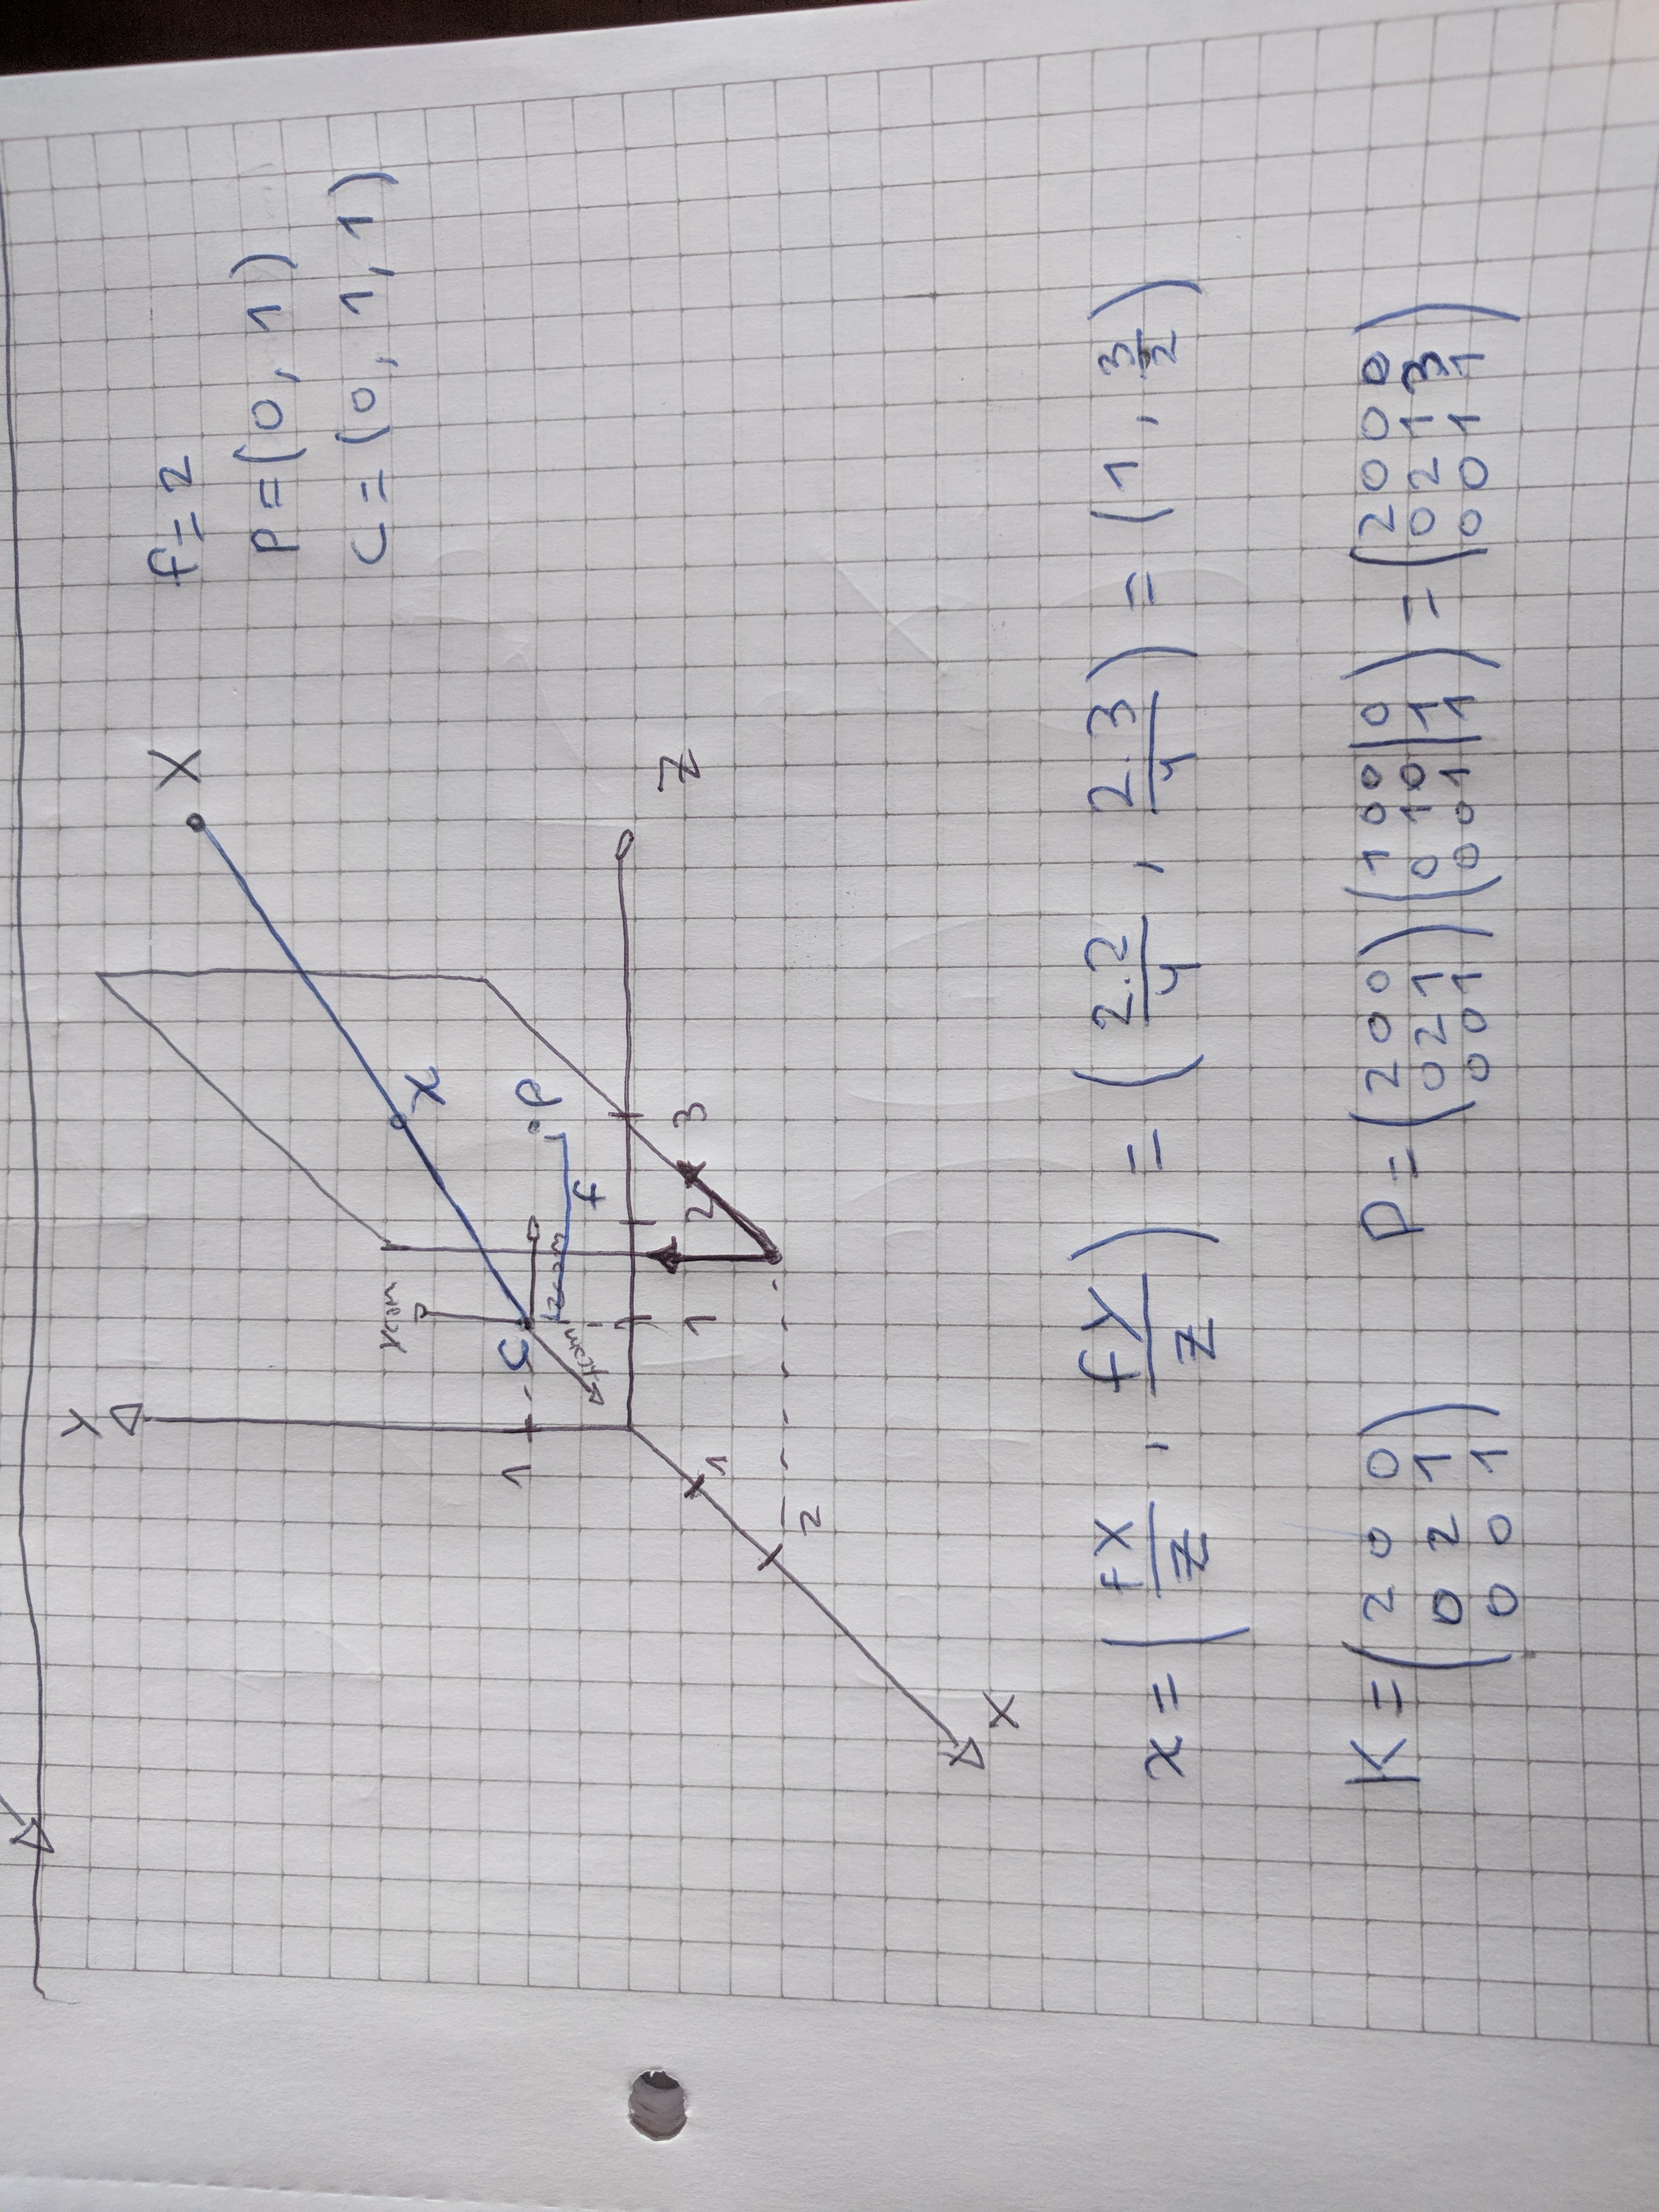 f = 2
P = (0, 1)
C = (0, 1, 1)
Y
X
1
ycam
x
C
zcam
f
P
xcam
1
2
3
Z
1
2
X
x = (fX/Z , fY/Z) = (2·2/4 , 2·3/4) = (1 , 3/2)
K = (2 0 0
0 2 1
0 0 1)
P = (2 0 0
0 2 1
0 0 1) (1 0 0 | 0
0 1 0 | 1
0 0 1 | 1) = (2 0 0 0
0 2 1 3
0 0 1 1)